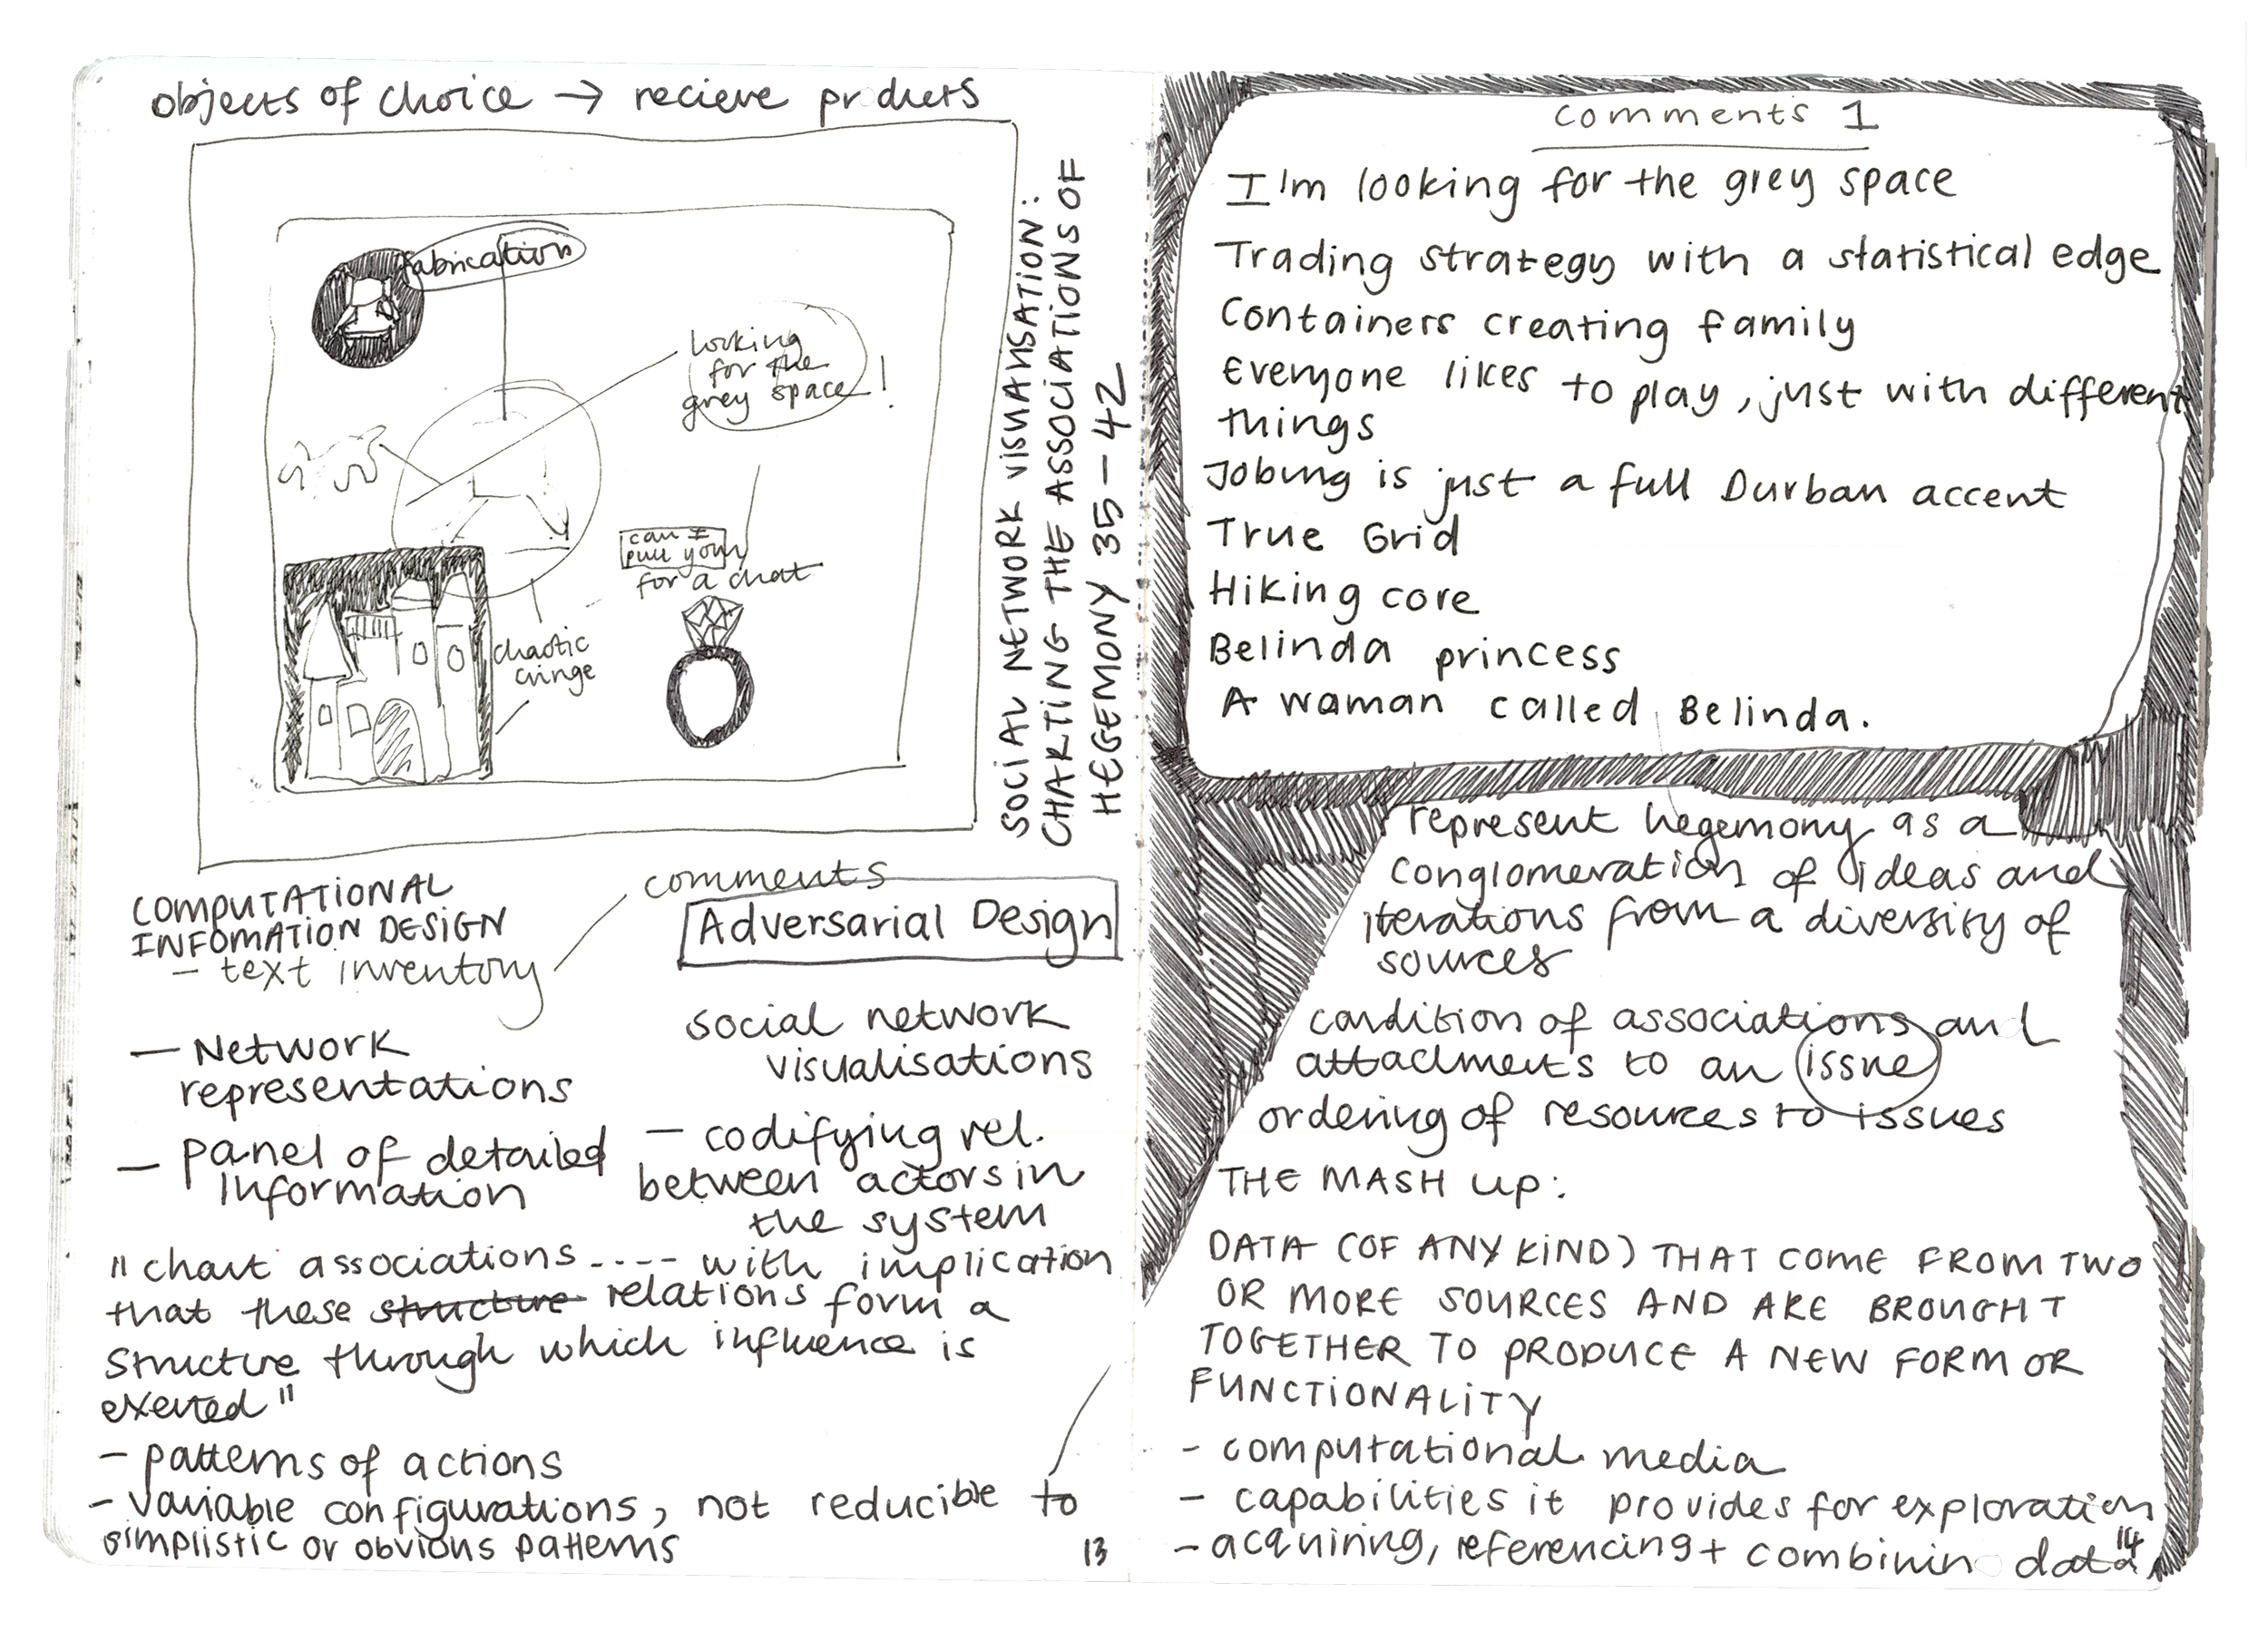 objects of choice → recieve products
fabrication
looking
for the
grey space!
can I
pull you
for a chat
chaotic
cringe
SOCIAL NETWORK VISUALISATION:
CHARTING THE ASSOCIATIONS OF
HEGEMONY 35-42
COMPUTATIONAL
INFOMATION DESIGN
- text inventory
comments
Adversarial Design
— Network
representations
— panel of detailed
Information
social network
visualisations
— codifying rel.
between actors in
the system
"chart associations .... with implication
that these structure relations form a
structure through which influence is
exerted"
- patterns of actions
- variable configurations, not reducible to
simplistic or obvious patterns
13
comments 1
I'm looking for the grey space
Trading strategy with a statistical edge
Containers creating family
Everyone likes to play, just with different
things
Joburg is just a full Durban accent
True Grid
Hiking core
Belinda princess
A woman called Belinda.
represent hegemony as a
conglomeration of ideas and
iterations from a diversity of
sources
condition of associations and
attachments to an issue
ordering of resources to issues
THE MASH UP:
DATA (OF ANY KIND) THAT COME FROM TWO
OR MORE SOURCES AND ARE BROUGHT
TOGETHER TO PRODUCE A NEW FORM OR
FUNCTIONALITY
- computational media
- capabilities it provides for exploration
- acquiring, referencing + combinin data
14